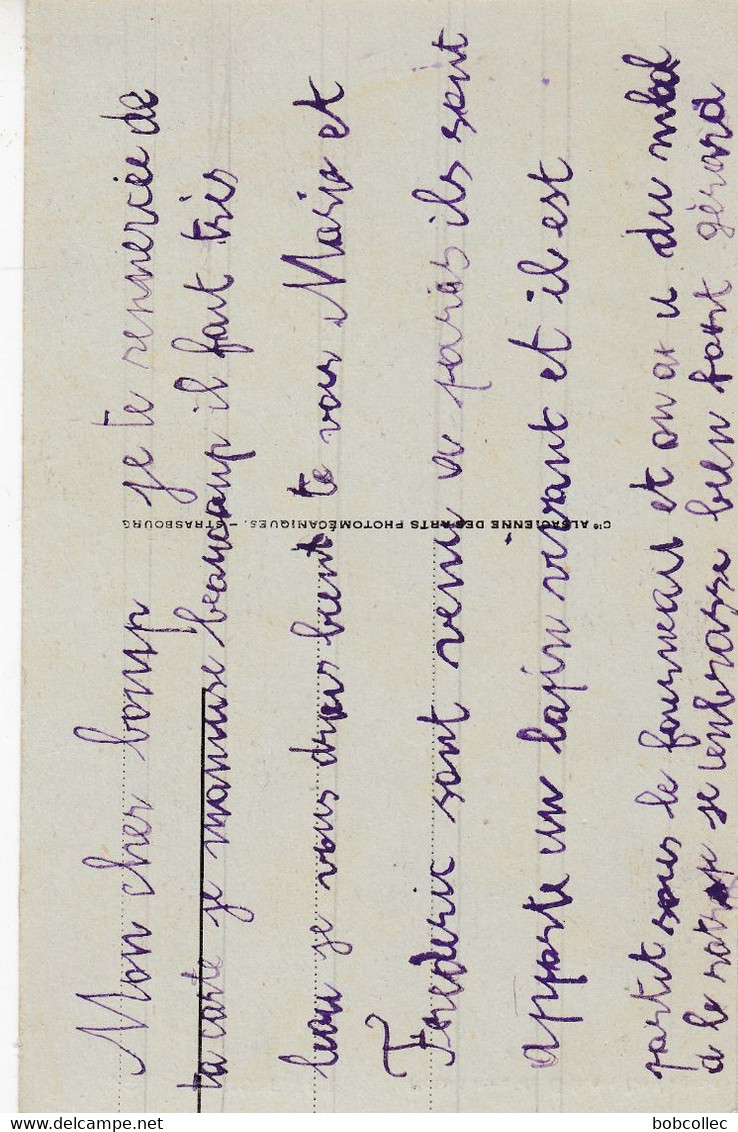 Mon cher bonp je te remercie de
ta carte je m'anuse beaucoup il fait très
beau je vous drais bient te voir Marie et
Frederic sont venu a paris ils sont
apporte un lapin vivant et il est
partit sous le fourneau et on a u du mal
a le je t'enbrasse bien fort gérard
Cie ALSACIENNE DES ARTS PHOTOMÉCANIQUES. — STRASBOURG
bobcollec